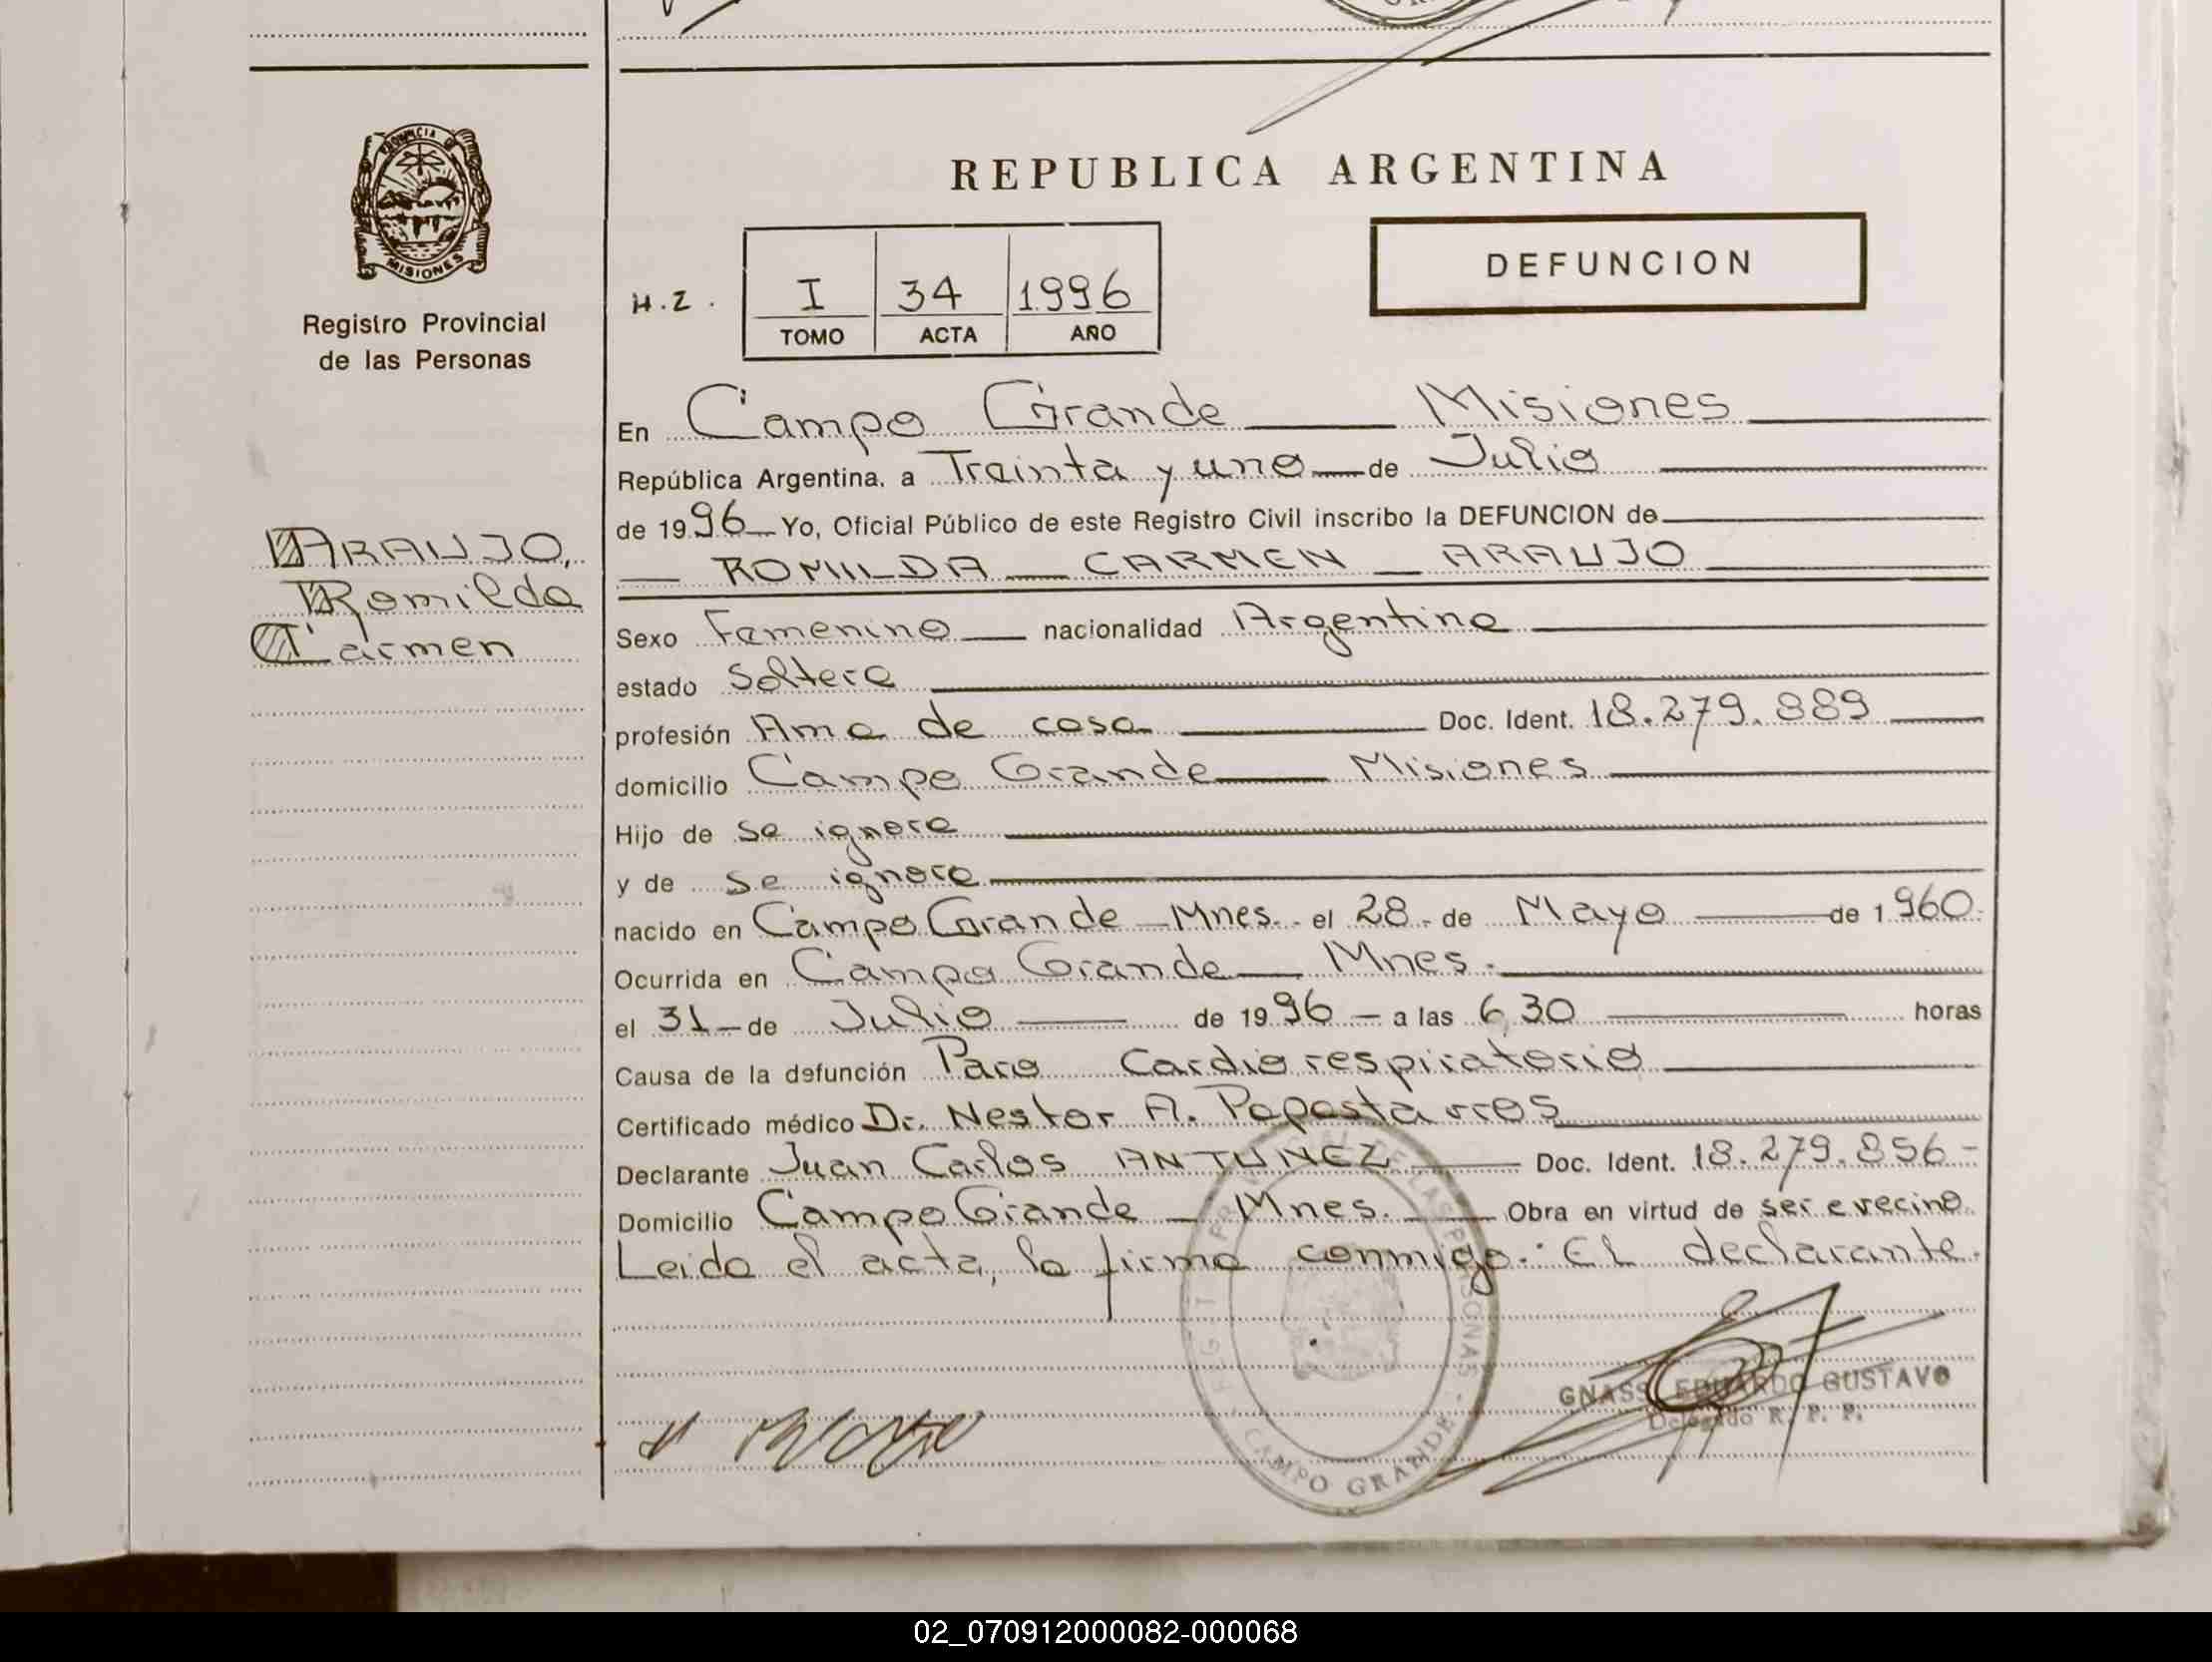 PROVINCIA DE
MISIONES
Registro Provincial
de las Personas
ARAUJO,
Romilda
Carmen
REPUBLICA ARGENTINA
H.Z. I 34 1996
TOMO ACTA AÑO
DEFUNCION
En Campo Grande Misiones
República Argentina, a Treinta y uno de Julio
de 1996 Yo, Oficial Público de este Registro Civil inscribo la DEFUNCION de
ROMILDA CARMEN ARAUJO
Sexo Femenino nacionalidad Argentina
estado Soltera
profesión Ama de casa Doc. Ident. 18.279.889
domicilio Campo Grande Misiones
Hijo de se ignora
y de se ignora
nacido en Campo Grande - Mnes. el 28 de Mayo de 1960
Ocurrida en Campo Grande Mnes.
el 31 de Julio de 1996 a las 6,30 horas
Causa de la defunción Paro Cardio respiratorio
Certificado médico Dr. Nestor A. Papastavros
Declarante Juan Carlos ANTUNEZ Doc. Ident. 18.279.856-
Domicilio Campo Grande - Mnes. Obra en virtud de ser vecino
Leida el acta, la firma conmigo: El declarante.
CAMPO GRANDE
GNASS EDUARDO GUSTAVO
Delegado R. P. P.
02_070912000082-000068